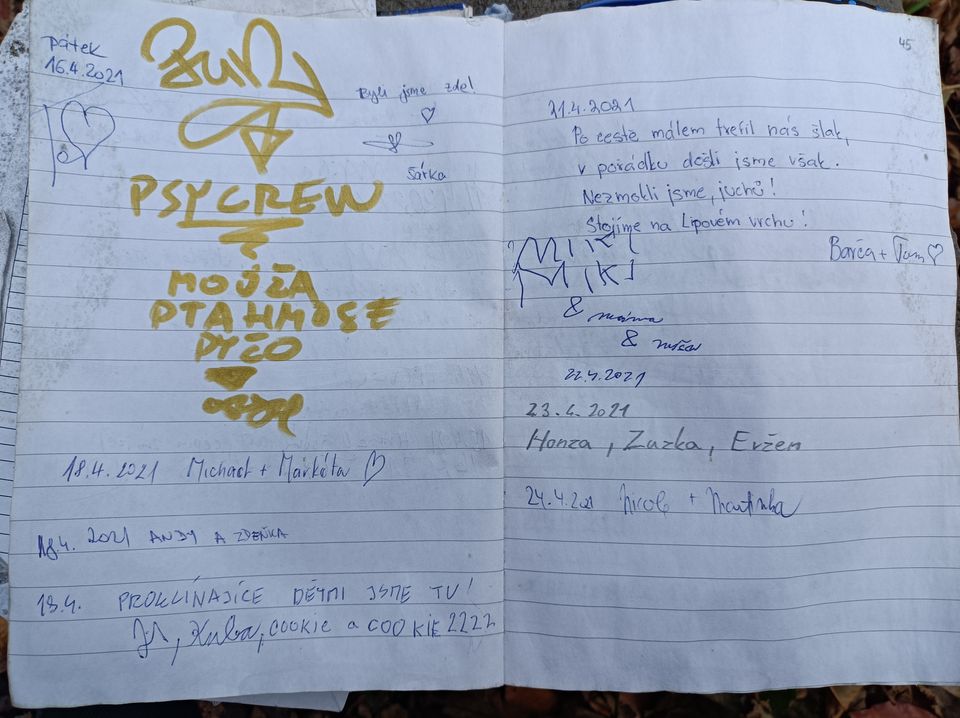 pátek
16.4.2021
Byli jsme zde!
Šárka
PSYCREW
MOJŽA
PTAHMOSE
PYČO
18.4.2021 Michael + Markéta
18.4. 2021 ANDY A ZDEŇKA
18.4. PROKLÍNAJÍCE DĚTMI JSME TU!
Kuba, COOKIE a COOKIE 2222
45
21.4.2021
Po cestě málem trefil nás šlak,
v pořádku došli jsme však.
Nezmokli jsme, juchů!
Stojíme na Lipovém vrchu!
Barča + Tom
MIKI
&
&
22.4.2021
23.4.2021
Honza, Zuzka, Evžen
24.4.2021 Nicol + Martinka